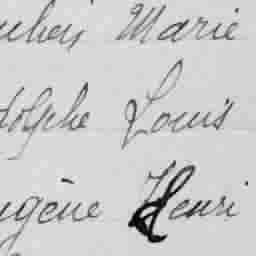 Marie
dolphe Louis
ugène Henri